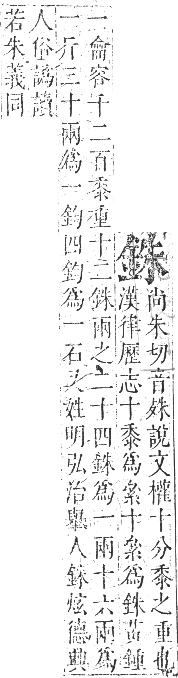 銖尚朱切音姝說文權十分黍之重也
漢律歷志十黍爲絫十絫爲銖黃鍾
一龠容千二百黍重十二銖兩之二十四銖爲一兩十六兩爲
一斤三十兩爲一鈞四鈞爲一石又姓明弘治舉人銖炫德興
人俗譌讀
若朱義同